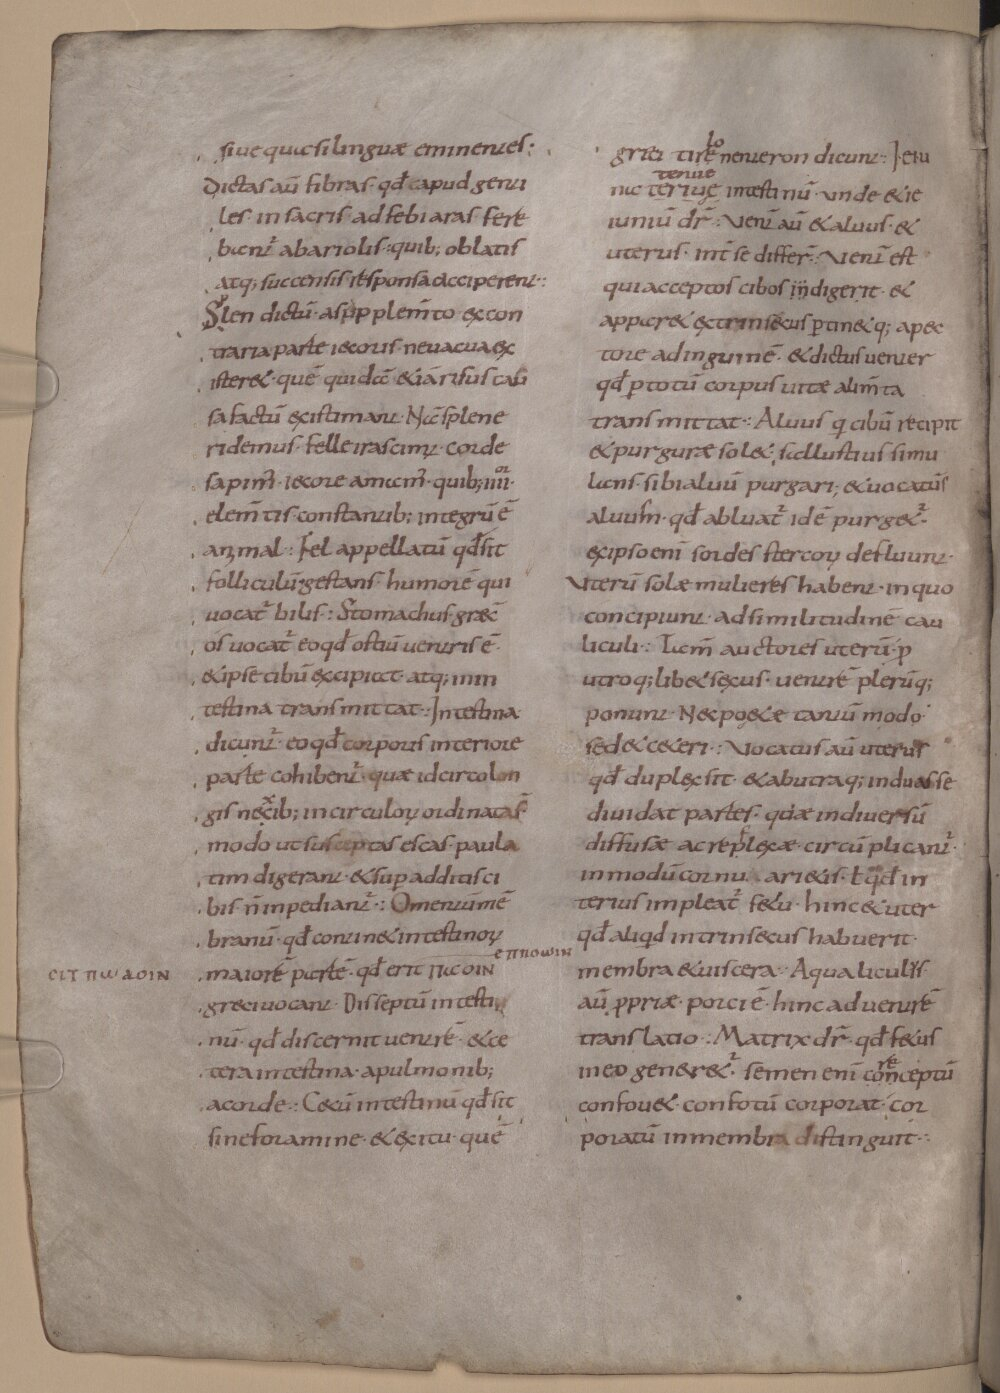 siue quasi linguae eminentes:
Dictas aū fibras · qđ capud genti
les · in sacris ad febi aras fere
bant᷑ ab ariolis · quib; oblatis
atq; succensis responsa acciperent:·
Splen dictū · a supplem̄to · ex con
traria parte iecoris · ne uacua ex
isteret · quē quidā etiā risus cau
sa factū existimant · Nā splene
ridemus · felle irascim᷑ · corde
sapim᷑ · iecore amam᷑ · quib; iiii
or
elem̄tis constantib; integrū ē
animal :· Fel appellatū qđ sit
folliculū · gestans · humorē qui
uocat᷑ bilis :· Stomachus grecē
os uocat᷑ eo qđ ostiū uentris ē ·
et ipse cibū excipiat · atq; in in
testina transmittat :· Intestina
dicunt᷑ · eo qđ corporis interiore
parte cohibent᷑ · quae idcirco lon
gis nexib; in circuloꝝ ordinatas̄
modo ut susceptas escas · paula
tim digerant · et suꝑ additis ci
bis n̄ inpediant᷑ :· Omentū mē
branū · qđ continet intestinoꝝ
επποωιν
ειτ πω αοιν
maiorē partē · qđ erit πιαοιν
greci uocant · Disseptū intesti
nū · qđ discernit uentrē · et ce
tera intestina · a pulmonib;
a corde :· Cecū intestinū qđ sit
sine foramine · et exitu · quē
greci tiflenenteron dicunt :· Ieiu
lo
tenue
nic terive intestinū · unde et ie
iuniū dr̄ :· Vent̄ aū et aluus · et
uterus · int̄ se differt̄ :· Vent̄ est
qui acceptos cibos indigerit · et
apparet extrinsecus ꝑtinetq; a pec
tore ad inguinē · et dictus uenter
qđ ꝑ totū corpus uitae alim̄ta
transmittat :· Aluus qi cibū recipit
et purgarae solet · sallustius simu
lans · sibi aluū purgari; et uocatus̄
aluum · qđ abluat᷑ idē purget᷑ ·
ex ipso enī sordes stercoꝝ defluunt ·
Vterū solae mulieres habent · in quo
concipiunt · ad similitudinē cau
liculi :· Tam̄ auctores uterū · ꝓ
utroq; libet sexus · uentrē plerūq;
ponunt · Nec poetae tantū modo ·
sed et ceteri :· Vocatus aū uterus
qđ duplex sit · et ab utraq; in duas se
diuidat partes · quae in diuersū
diffusae ac replexae · circū plicant᷑ ·
in modū cornu arietis · ł qđ in
terius impleat᷑ fetu · hinc et uter
qđ aliqid intrinsecus habuerit ·
membra et uiscera :· Aqualiculis
aū ꝓpriae · porci ē · hinc ad uentrē
translatio :· Matrix dr̄ · qđ fetus
in eo generet᷑ · semen enī conceptū
re
confouet · confotū corporat · cor
poratū in membra distinguit :·